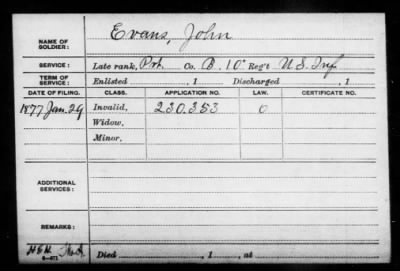 NAME OF SOLDIER: Evans, John
SERVICE: Late rank, Prt. Co. B, 10" Reg't U.S. Inf
TERM OF SERVICE: Enlisted , 1 Discharged , 1
DATE OF FILING. CLASS. APPLICATION NO. LAW. CERTIFICATE NO.
1877 Jan. 29 Invalid, 230.353 O
Widow,
Minor,
ADDITIONAL SERVICES:
REMARKS:
Died , 1 , at